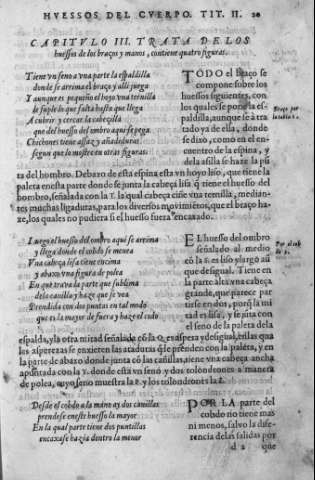 HVESSOS DEL CVERPO. TIT. II. 20
CAPITVLO III. TRATA DE LOS
huessos de los braços y manos, contiene quatro figuras.
Tiene vn seno a vna parte la espaldilla
donde se arrima el braço y alli juega
Y aunque es pequeño el hoyo vna ternilla
le suple lo que falta hasta que llega
A cubrir y cercar la cabeçilla
que del huesso del ombro aqui se pega
Chichones tiene assaz y añadeduras
segun que lo mostre en otras figuras.
TODO el Braço se
compone sobre los
huessos siguientes, con
los quales se pone la es-
paldilla, aunque se a tra
tado ya de ella, donde
se dixo, como en el en-
cuentro de la espina, y
del a asilla se haze la pũ
ta del hombro. Debaxo de esta espina esta vn hoyo liso, que tiene la
paleta en esta parte donde se junta la cabeça lisa q̃ tiene el huesso del
hombro, señalada con la
muchas ligaduras, para los diuersos mouimiẽtos, que el braço ha-
ze, los quales no pudiera si el huesso fuera encaxado.
Luego el huesso del ombro aqui se arrima
y llega donde el cobdo se menea
Vna cabeça lisa tiene encima
y abaxo vna figura de polea
En que traua la parte que sublima
dela canilla y haze que se vea
Prendida con dos puntas en tal modo
que es la mayor de fuerça y haze el cudo
EL huesso del ombro
señalado al medio
cõ la
que desigual. Tiene en
la parte alta vna cabeça
grande, que parece par
tirse en dos, porq̃ la mi
tad es lisa, y se jũta con
el seno de la paleta dela
espalda, y la otra mitad señalada cõ la
les asperezas se enxieren las ataduras q̃ le prenden con la paleta, y en
la parte de abaxo donde junta cõ las canillas, tiene vna cabeça ancha
donde está vn seno y dos tolondrones a manera
de polea, cuyo seno muestra la
Desde el cobdo a la mano ay dos canillas
prendese eneste huesso la mayor
En la qual parte tiene dos puntillas
encaxase hazia dentro la menor
POR LA parte del
cobdo no tiene mas
ni menos, saluo la di-
ferencia delas salidas por
que